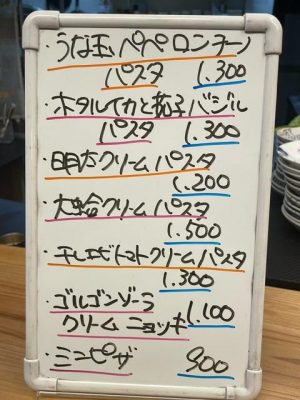 ・うな玉ペペロンチーノ
パスタ 1.300
・ホタルイカと茄子バジル
パスタ 1.300
・明太クリームパスタ
1.200
・大蛤クリームパスタ
1.500
・干しエビトマトクリームパスタ
1.300
・ゴルゴンゾーラ
クリームニョッキ 1.100
・ミニピザ 900